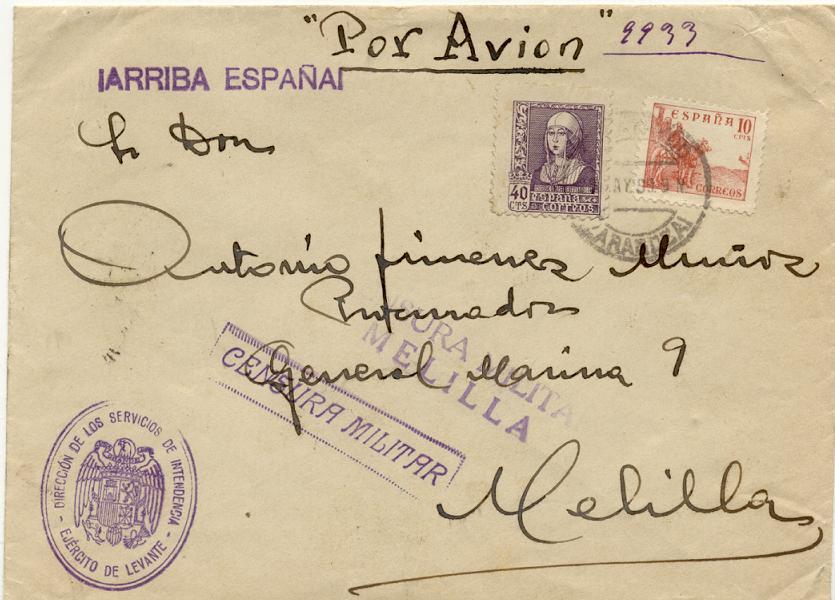 "Por Avion" 9933
¡ARRIBA ESPAÑA!
Sr Don
40 CTS
España
Correos
ESPAÑA 10
CTS
CORREOS
AY.39.9 N
Antonio Jimenez Muñoz
General Marina 9
Melilla
CENSURA MILITAR
SURA MILITA
MELILLA
DIRECCIÓN DE LOS SERVICIOS DE INTENDENCIA
- EJÉRCITO DE LEVANTE -